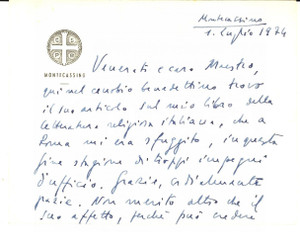 Montecassino
1. luglio 1974
MONTECASSINO
Venerato e caro Maestro,
qui nel cenobio benedettino trovo
il suo articolo sul mio libro della
letteratura religiosa italiana, che a
Roma mi era sfuggito, in questa
fine stagione di troppi impegni
d'ufficio. Grazie,
grazie. Non merito altro che il
suo affetto, perché può credere